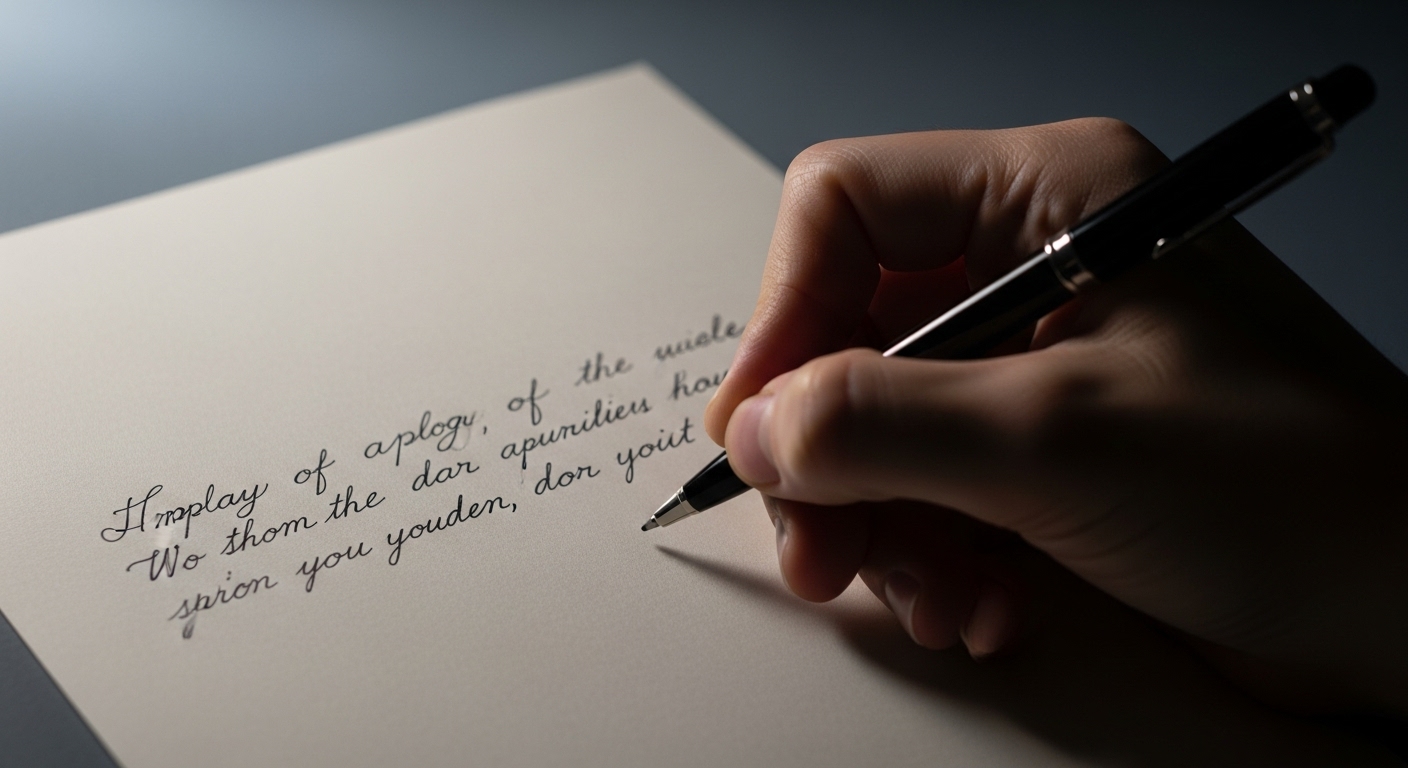 Hmplay of aplogy, of the
Wo thom the dar apuniliers hou
spiron you youden, don yout